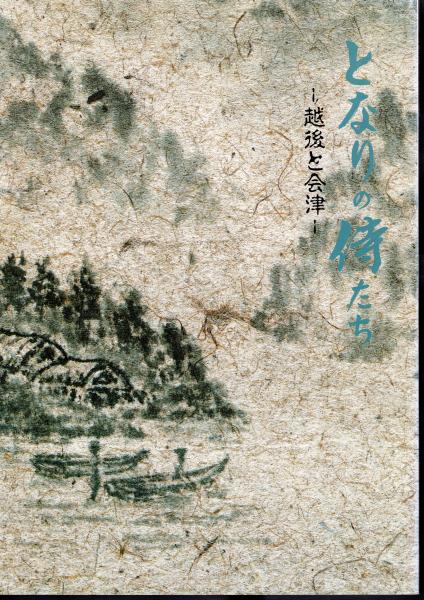 となりの侍たち
～越後と会津～